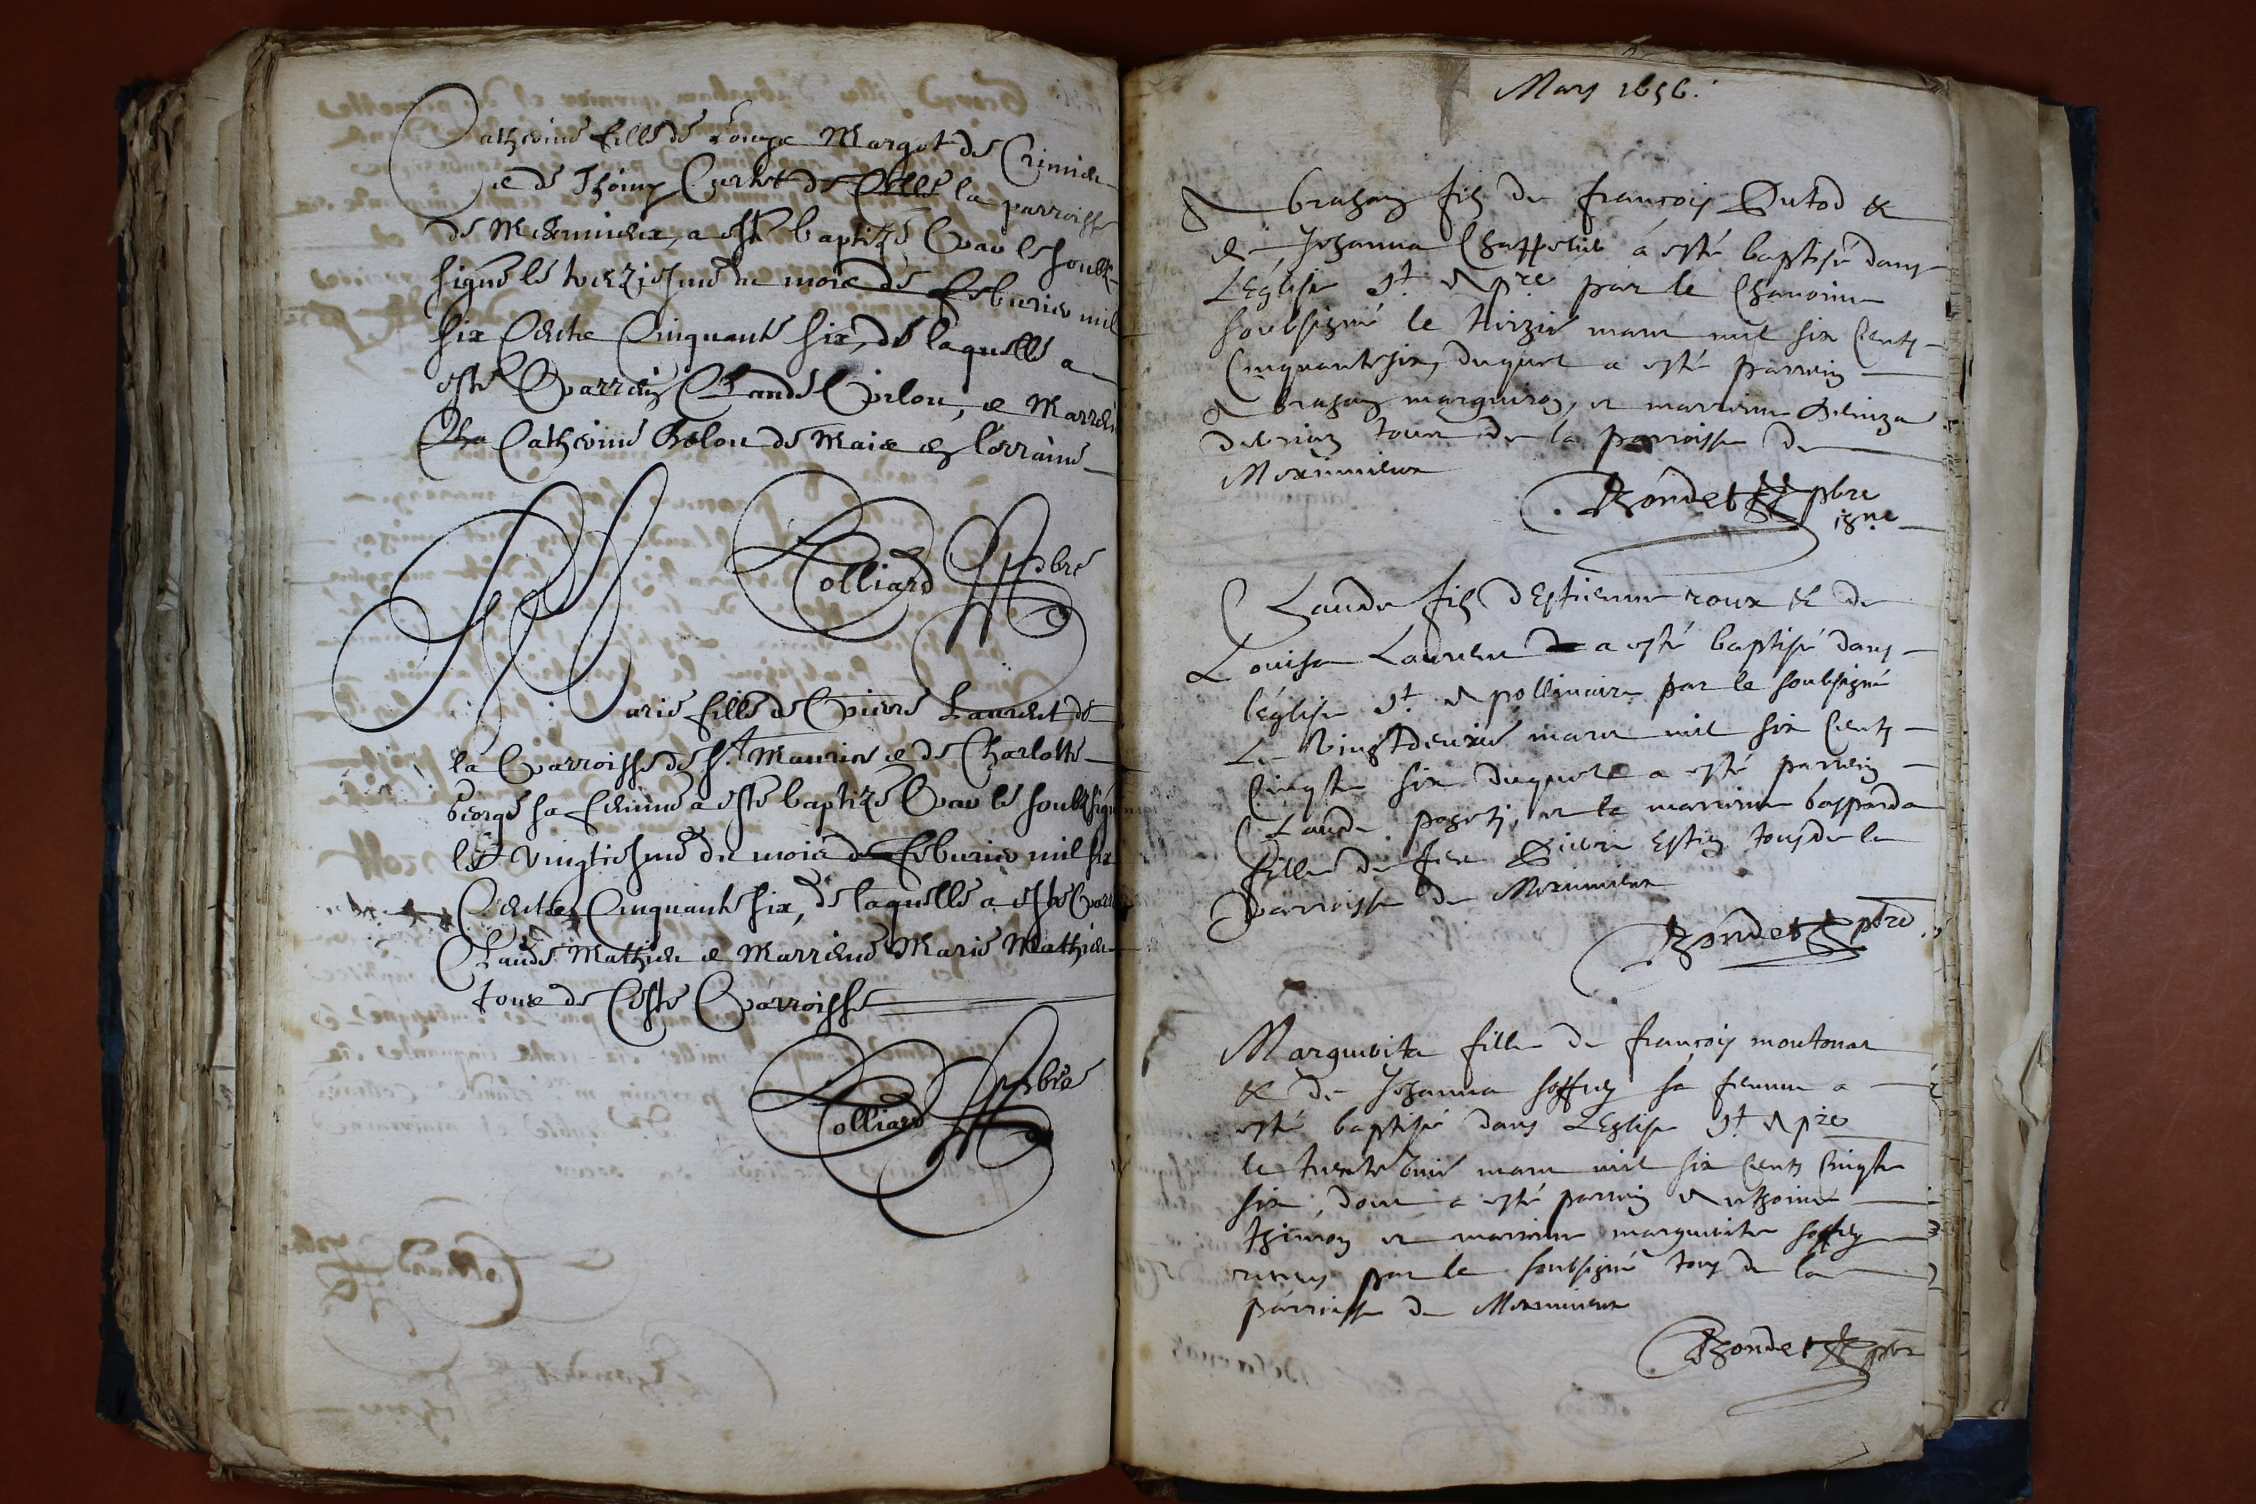 Catherine fille de Louys Margot de Crimieu
e de Thöiny de la parroisse
de Meximieux, a esté baptizé par le soubz
signé le treziesme du moie de Feburier mil
six Centz Cinquante six, de laquelle a
esté Parrein Claude, e Marrei
Catherine de en Lorraine
Colliard pbre
Marie fille de Pierre Laurent de
la Parroisse de St Maurice e de Charlotte
George sa femme a esté baptizé Par le soubzsigné
le vingtiesme du moie de Feburier mil six
Centz Cinquante six, de laquelle a esté Parr
Claude Mathieu e Marriene Marie Mathieu
toue de Ceste Parroisse
Colliard pbre
Mars 1656.
Abraham filz de françois Dutod &
de Johanna a esté baptisé dans
L'Eglise St Apre par le Chanoine
soubsigné le treizie mars mil six Cents
Cinquantesix, duquel a esté parrein
Abraham, et marrine
tous de la parroisse de
Meximieux
Rhondet pbre
Claude filz d'Estienne roux & de
Louisa Laurent a esté baptisé dans
l'église St Appollinaire par le soubsigné
Le vingtdeuxie mars mil six Cents
Cinqte six duquel a esté parrein
Claude, et la marrine
fille de feu Pierre Estien tous de la
Parroisse de Meximieux
Rhondet pbre
Marguerita fille de françois moutonat
& de Johanna soffrey sa femme a
esté baptisé dans L'Eglise St Apre
le trente mars mil six Cents Cinqte
six, dont a esté parrein Anthoine
et marrine marguerite soffrey
par le soubsigné tous de la
parroisse de Meximieux
Rhondet pbre